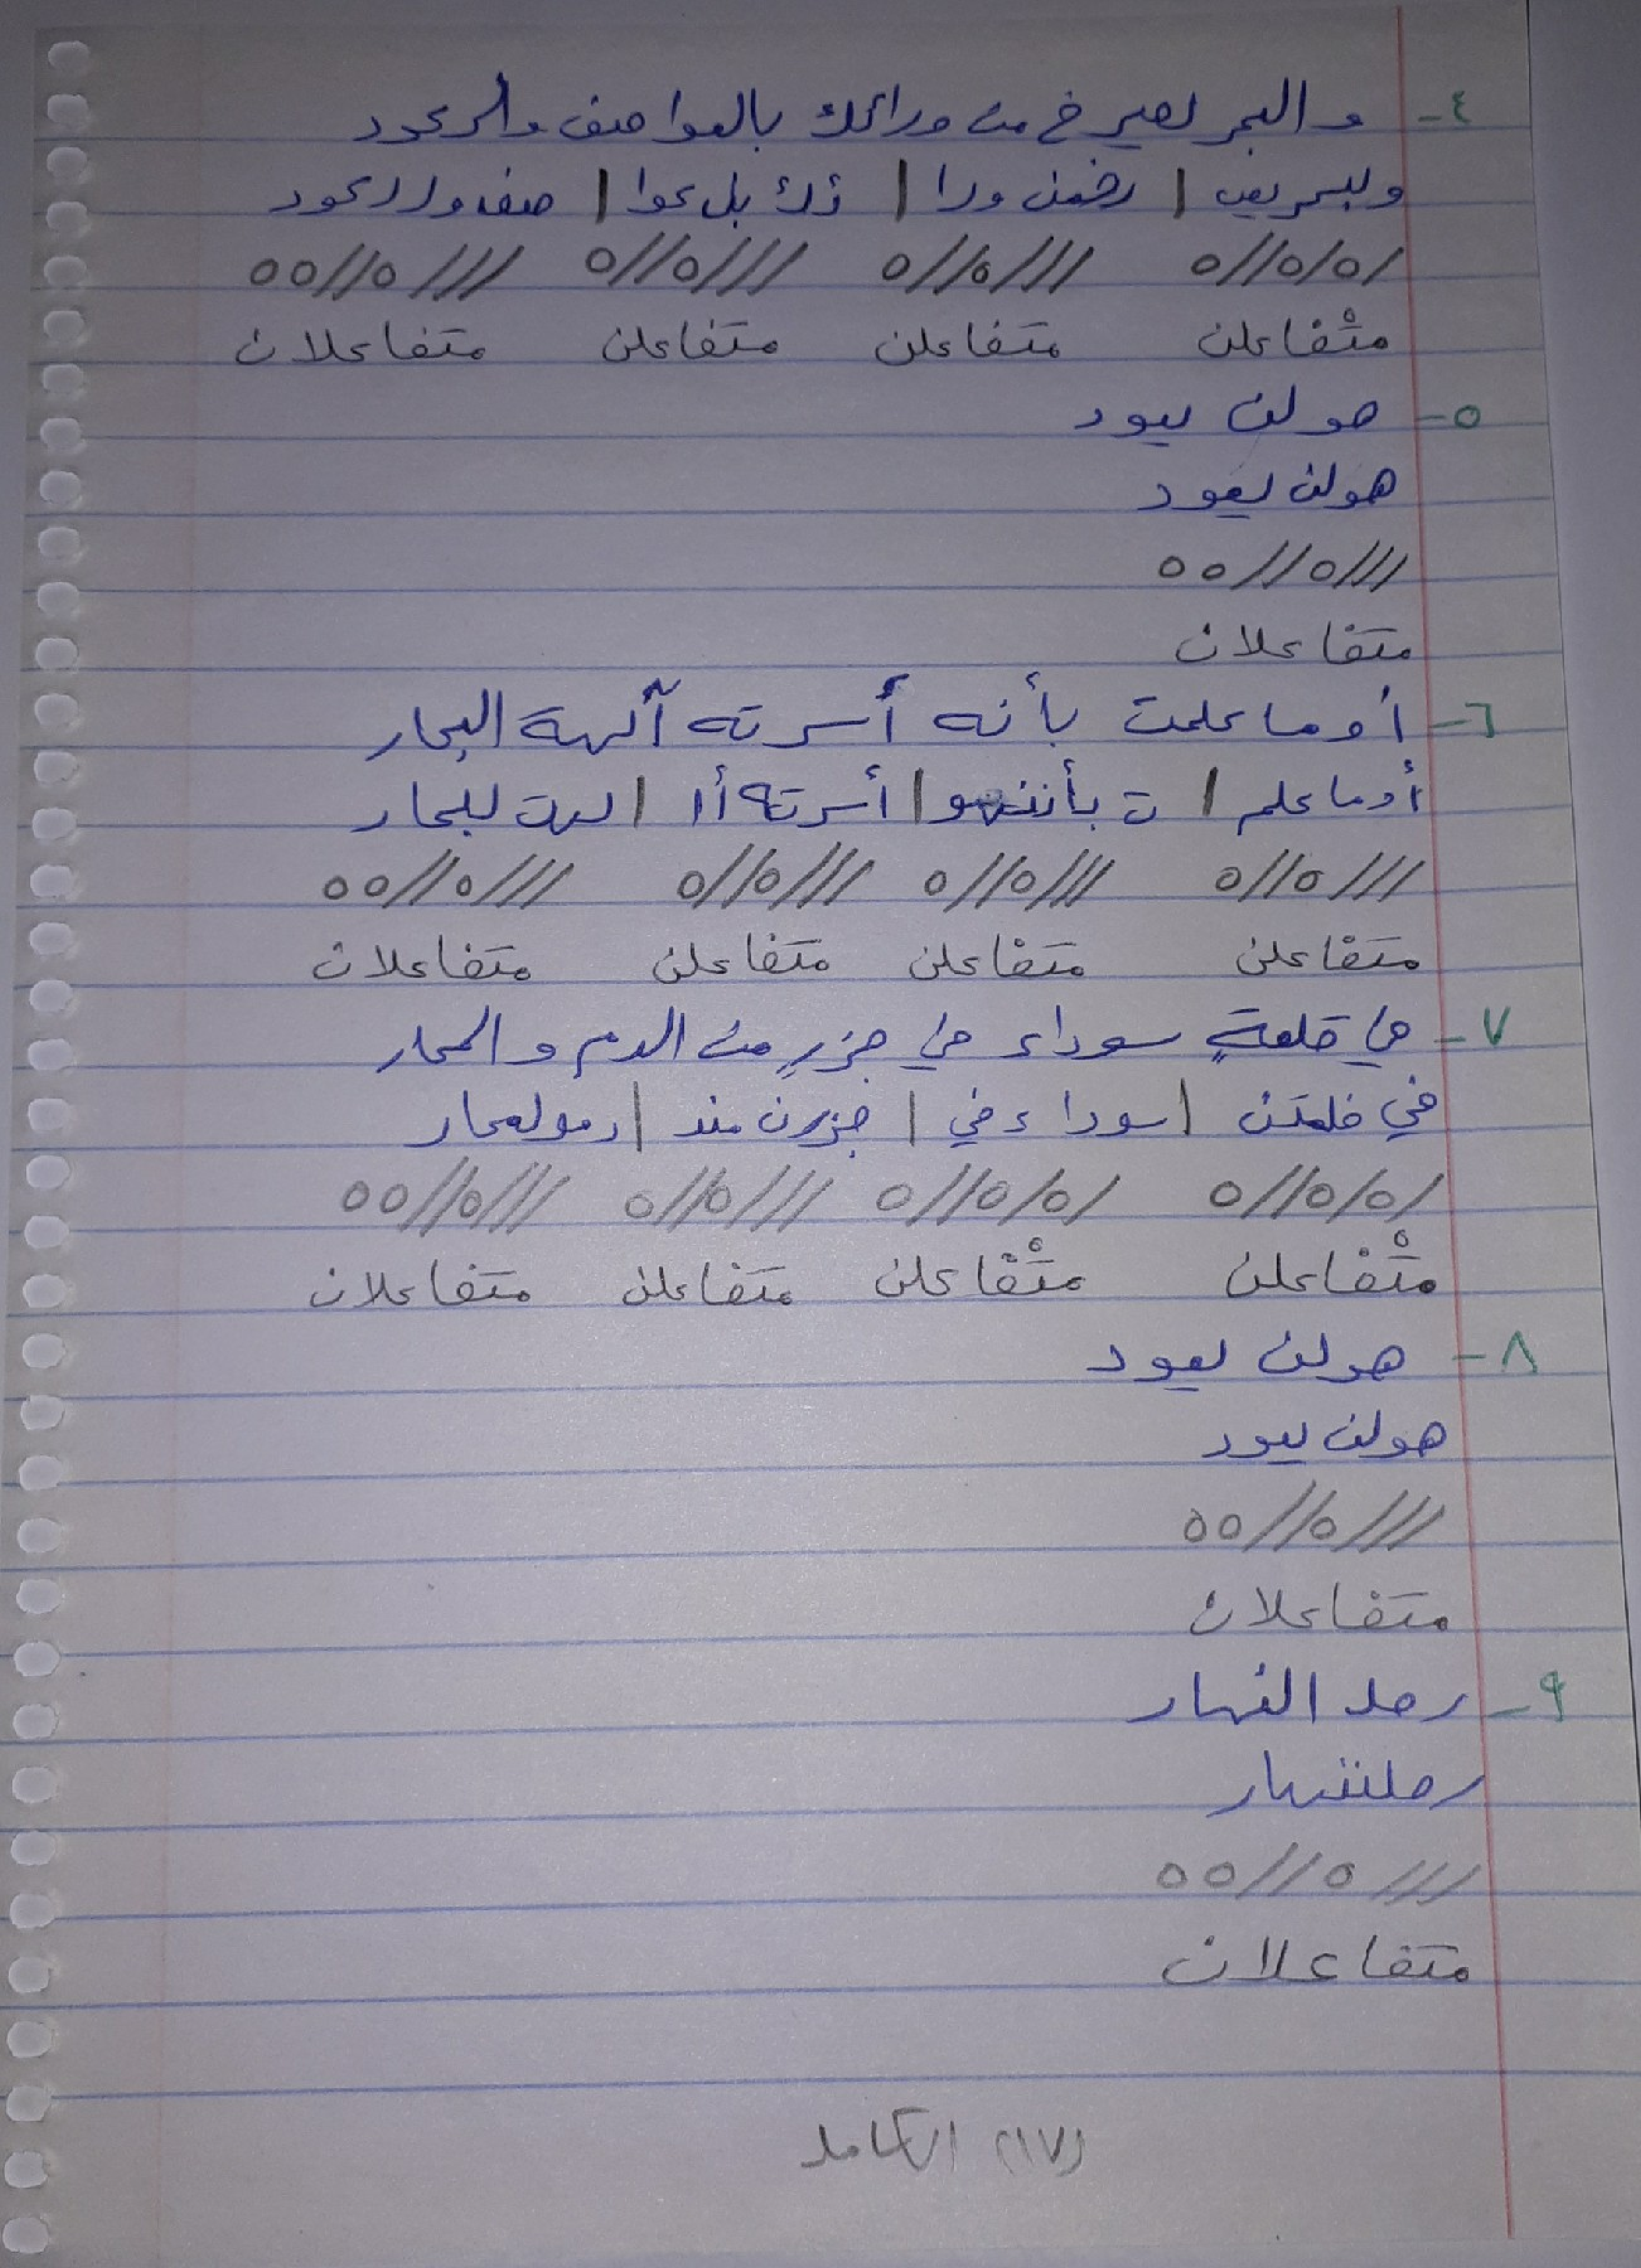 ٤- والبحر يصرخ من ورائك بالعواصف والرعود
ولبحر يص | رخمن ورا | ئك بل عوا | صف ورلرعود
/٥/٥//٥ ///٥//٥ ///٥//٥ ///٥//٥٥
متْفاعلن متفاعلن متفاعلن متفاعلان
٥- هو لن يعود
هولن يعود
///٥//٥٥
متفاعلان
٦- أو ما علمت بأنه أسرته آلهة البحار
أوما علم | ت بأننهو | أسرته أا | لهة لبحار
///٥//٥ ///٥//٥ ///٥//٥ ///٥//٥٥
متفاعلن متفاعلن متفاعلن متفاعلان
٧- في قلعةٍ سوداء في جزرٍ من الدم والمحار
في قلعتن | سوداء في | جزرن مند | دمولمحار
/٥/٥//٥ /٥/٥//٥ ///٥//٥ ///٥//٥٥
متْفاعلن متْفاعلن متفاعلن متفاعلان
٨- هو لن يعود
هولن يعود
///٥//٥٥
متفاعلان
٩- رحل النهار
رحلننهار
///٥//٥٥
متفاعلان
(١٧) الكامل